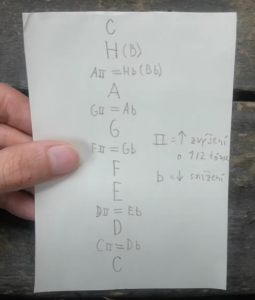 C
H (B)
A♯ = Hb (Bb)
A
G♯ = Ab
G
F♯ = Gb
F
E
D♯ = Eb
D
C♯ = Db
C
♯ = ↑ zvýšení
o 1/2 tónu
b = ↓ snížení